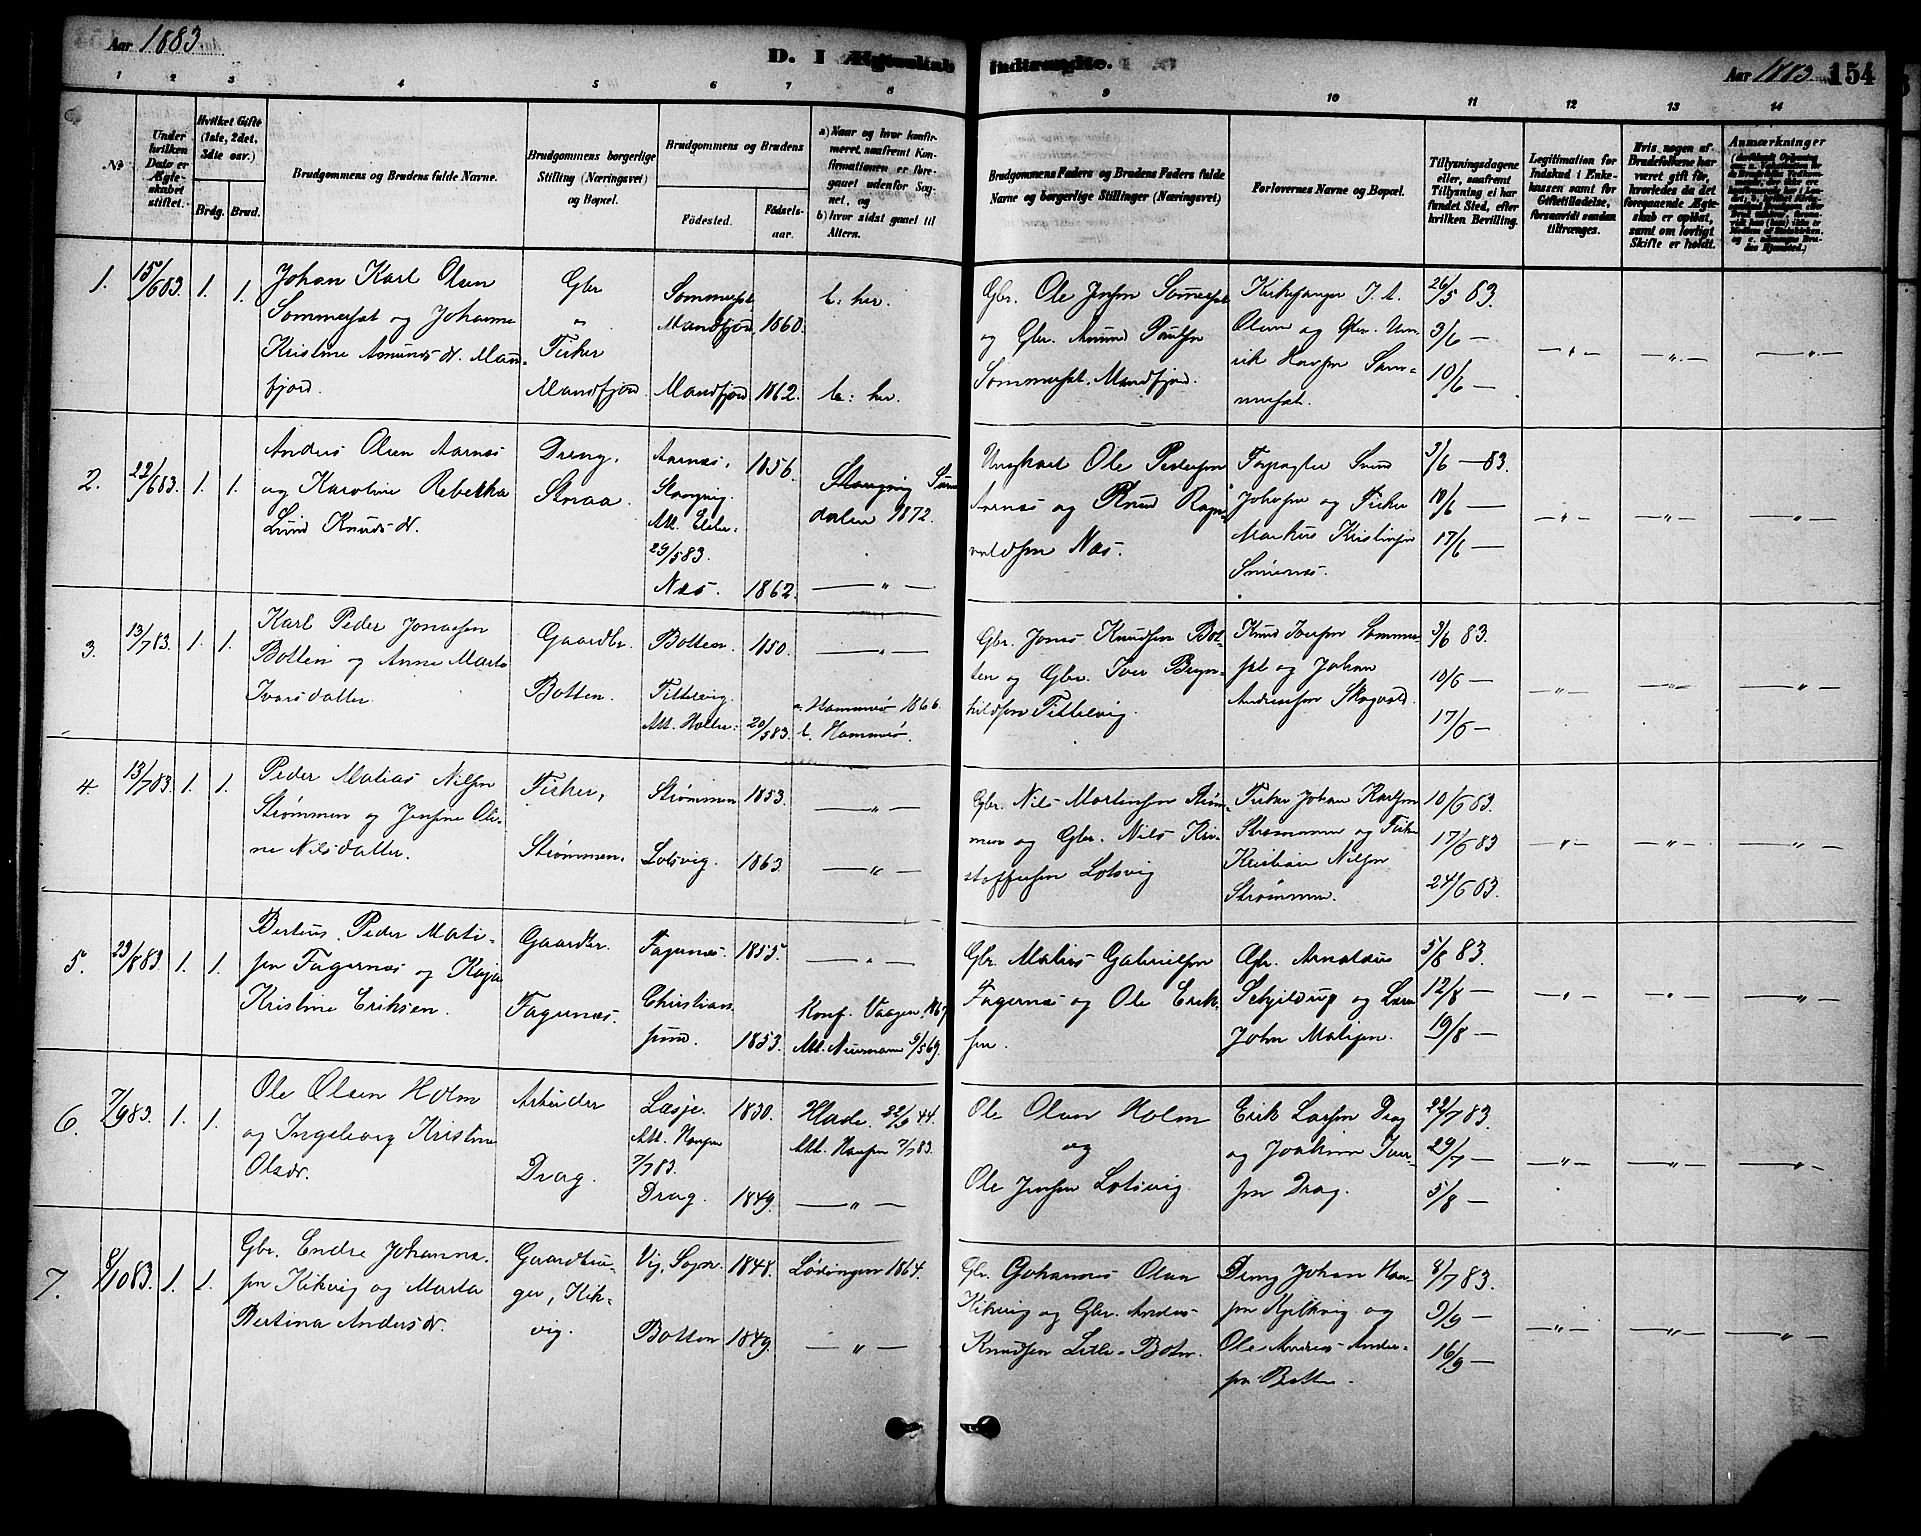 Aar 1883.
D. I Ægteskab Indtrængte.
Aar 1883. 154
1 2 3 4 5 6 7 8 9 10 11 12 13 14
No
Under hvilken Dato er Ægteskabet stiftet.
Hvilket Gifte (1ste, 2det, 3die osv.)
Brdg. Brud.
Brudgommens og Brudens fulde Navne.
Brudgommens borgerlige Stilling (Næringsvei) og Bopæl.
Brudgommens og Brudens
Fødested.
Fødsels-aar.
a) Naar og hvor konfirmeret, saafremt Konfirmationen er foregaaet udenfor Sognet, og
b) hvor sidst gaaet til Alters.
Brudgommens Faders og Brudens Faders fulde Navne og borgerlige Stillinger (Næringsvei)
Forlovernes Navne og Bopæl.
Tillysningsdagene eller, saafremt Tillysning ei har fundet Sted, efter hvilken Bevilling.
Legitimation for Indskud i Enkekassen samt for Giftetilladelse, forsaavidt saadan tiltrænges.
Hvis nogen af Brudefolkene har været gift før, hvorledes da det foregaaende Ægteskab er opløst, samt om lovligt Skifte er holdt.
Anmærkninger
1. 15/6 83. 1. 1.
Johan Karl Olsen
Sommerset og Johanne
Kristine Amunds dr. Man-
fjord.
Gbr
"
Fisker
Mandfjord
Sommerset
Mandfjord 1860.
Mandfjord 1862.
b: her.
b: her.
Gbr. Ole Jensen Sommerset
og Gbr. Amund Paulsen
Sommerset, Mandfjord.
Kirkesanger J. A.
Olsen og Gbr.
Hansen Som-
merset.
26/5 83.
3/6 —
10/6 —
— " — — " — — " —
2. 22/6 83. 1. 1.
Anders Olsen Aarnæs
og Karoline Rebekka
Lund Knuds dr.
Dreng,
Aarnæs, 1856.
Stangvig.
29/5 83.
Næs. 1862.
Stangvig
dalen 1872.
— " —
Ungkarl Ole Pedersen
Aarnæs og Knud Ragn-
valdsen Næs.
Forpagter
Johnsen og Fisker
Markus Kristensen
3/6 — 83.
10/6 —
17/6 —
— " — — " — — " —
3. 13/7 83. 1. 1.
Karl Peder Jonassen
Botten og Anne Marta
Ivarsdatter.
Gaardbr.
Botten.
Botten. 1850.
Att. Holter: 20/5 83.
— " —
a. Hammerø 1866.
b. Hammerø.
Gbr. Jonas Knudsen Bot-
ten og Gbr. Iver Bryn-
hildsen
Knud Iversen Sommer-
set og Johan
Andreassen Skogvold.
3/6 83.
10/6 —
17/6 —
— " — — " — — " —
4. 13/7 83. 1. 1.
Peder Matias Nilsen
Strømmen og Jensine Oli-
ne Nilsdatter.
Fisker,
Strømmen.
Strømmen 1853.
Lotsvig. 1863.
— " —
— " —
Gbr. Nils Martinsen Strøm-
men og Gbr. Nils Kri-
stoffersen Lotsvig
Fisker Johan Karlsen
Strømmen og Fisker
Kristian Nilsen
Strømmen.
10/6 83.
17/6 83
24/6 83.
— " — — " — — " —
5. 29/8 83. 1. 1.
Berteus Peder Mati-
sen Fagernæs og Kaja
Kristine Eriksen.
Gaardbr.
Fagernæs.
Fagernæs. 1855.
Christian
sund. 1853.
— " —
Konf. Vaagen
Att. 9/5 69.
Gbr. Matias Gabrielsen
Fagernæs og Ole Erik-
sen.
Gbr. Arnoldus
Schjelderup og
John Matisen.
5/8 83.
12/8 —
19/8 —
— " — — " — — " —
6. 7/9 83. 1. 1.
Ole Olsen Holm
og Ingeborg Kristine
Olsdr.
Arbeider
Drag.
Læsje. 1830.
Att. Hansen
7/7 83.
Drag. 1849.
Hlade. 22/9 44.
Att. Hansen 7/7 83.
— " —
Ole Olsen Holm
og
Ole Jensen Lotsvig.
Erik Larsen Drag
og Joakim Iver-
sen Drag.
22/7 83.
29/7 —
5/8 —
— " — — " — — " —
7. 8/10 83. 1. 1.
Gbr. Endre Johanne-
sen Kikvig og Marta
Bertina Anders dr.
Gaardbru-
ger, Kik-
vig.
Vig, Sogn. 1848.
Botten 1849.
Lødingen 1864.
— " —
Gbr. Johannes Olsen
Kikvig og Gbr. Anders
Knudsen Lille-Botn.
Dreng Johan Han-
sen Kjelkvig og
Ole Andreas Ander-
sen Botten.
8/7 83.
9/9 —
16/9 —
— " — — " — — " —